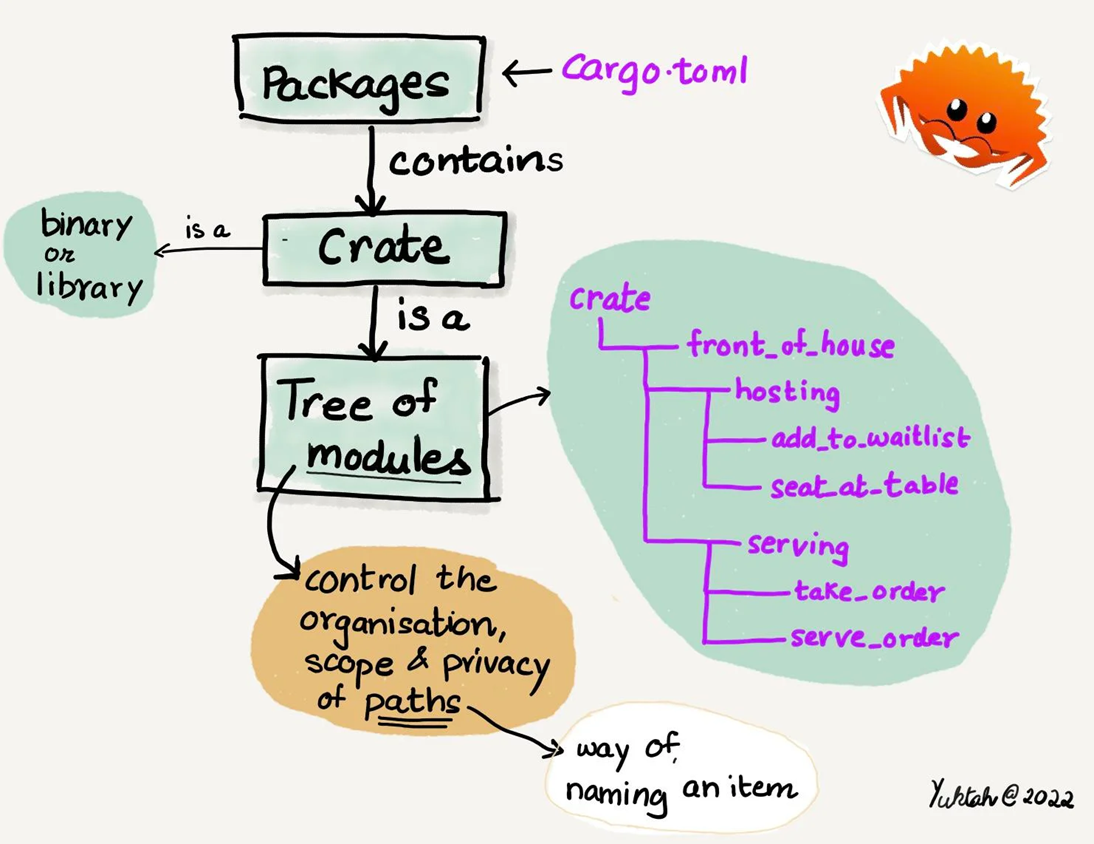 Packages
Cargo.toml
contains
binary
or
library
is a
Crate
is a
Tree of
modules
crate
front_of_house
hosting
add_to_waitlist
seat_at_table
serving
take_order
serve_order
control the
organisation,
scope & privacy
of paths
way of
naming an item
Yuktah @ 2022